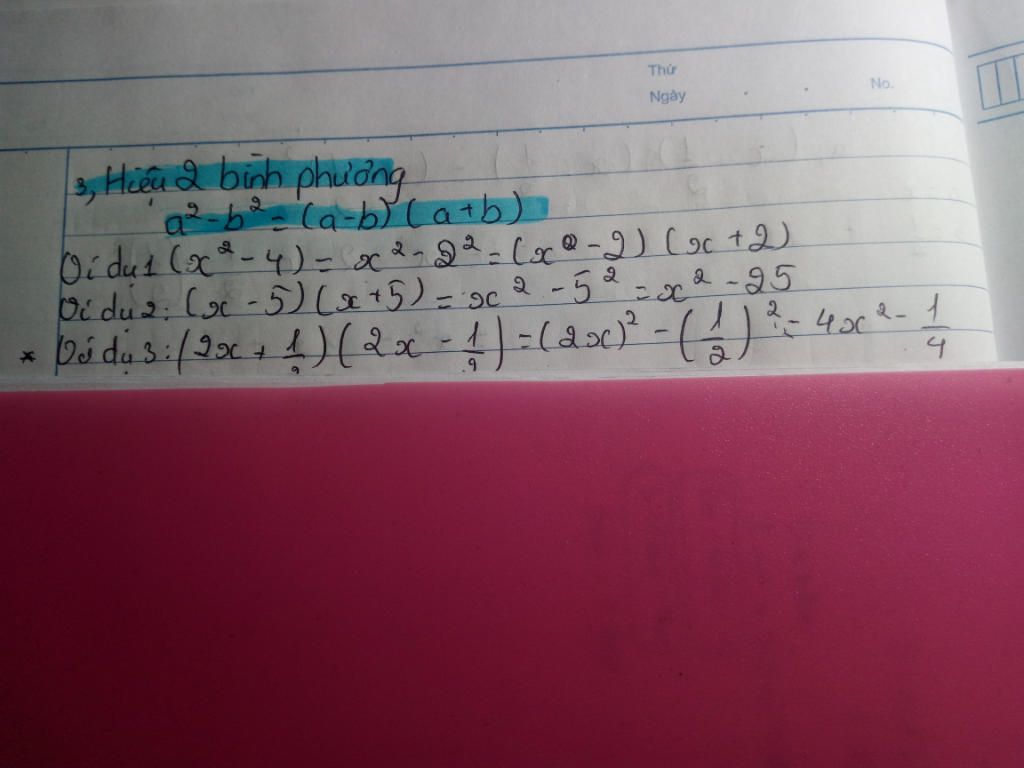 Thứ
Ngày No.
3, Hiệu 2 bình phương
a² - b² = (a - b) (a + b)
Ví dụ 1 (x² - 4) = x² - 2² = (x - 2) (x + 2)
Ví dụ 2: (x - 5) (x + 5) = x² - 5² = x² - 25
* Ví dụ 3: (2x + 1/2) (2x - 1/2) = (2x)² - (1/2)² = 4x² - 1/4